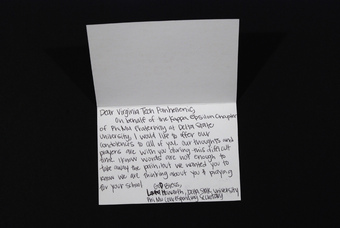 Dear Virginia Tech Panhellenic,
On behalf of the Kappa Epsilon Chapter
of Phi Mu Fraternity at Delta State
University, I would like to offer our
condolences to all of you. Our thoughts and
prayers are with you during this difficult
time. I know words are not enough to
take away the pain, but we wanted you to
know we are thinking about you & praying
for your school. God Bless,
Howarth, Delta State University
Phi Mu Corresponding Secretary